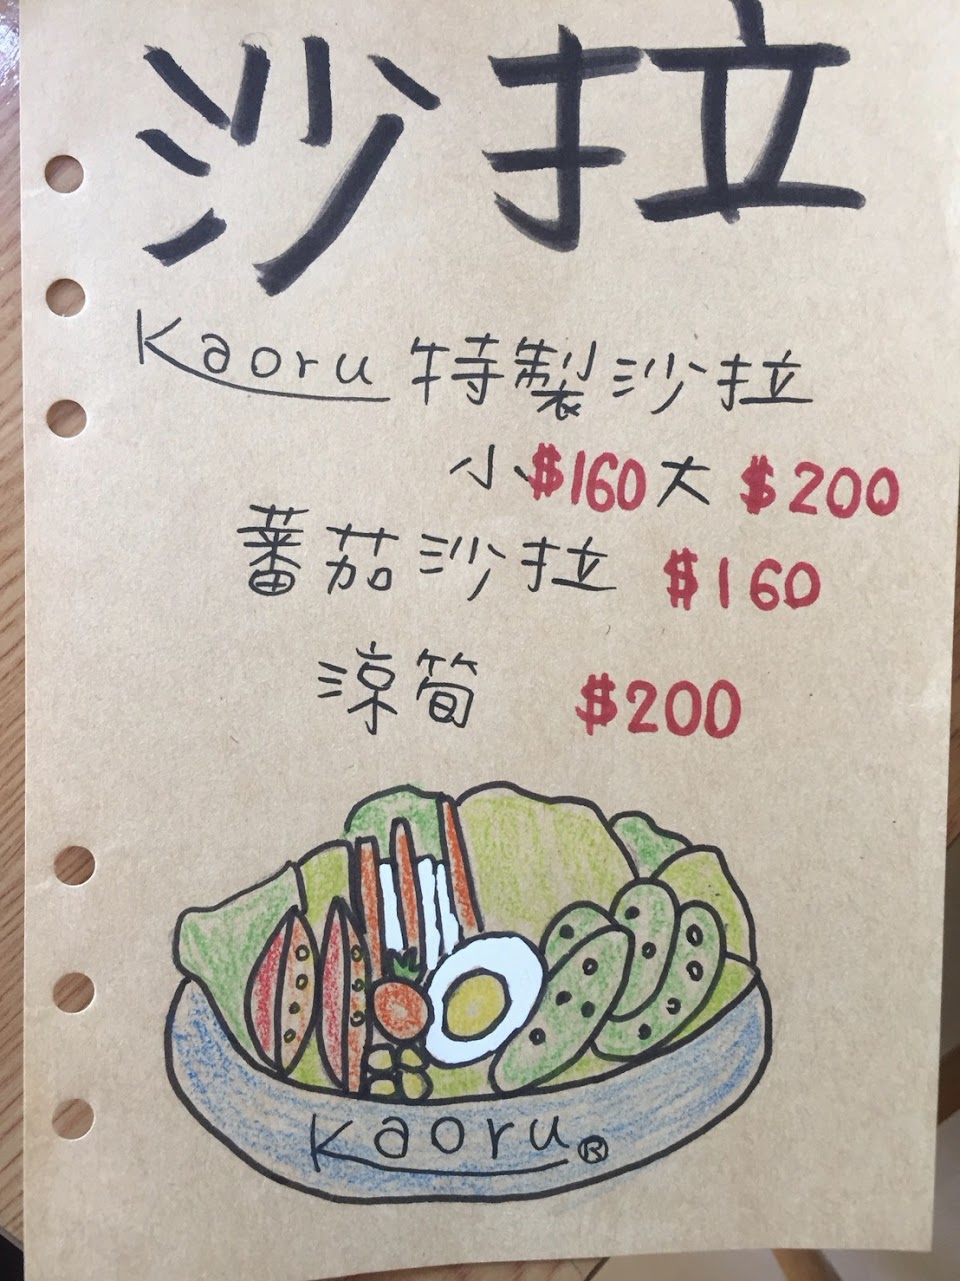 沙拉
Kaoru 特製沙拉
小 $160 大 $200
蕃茄沙拉 $160
涼筍 $200
Kaoru®